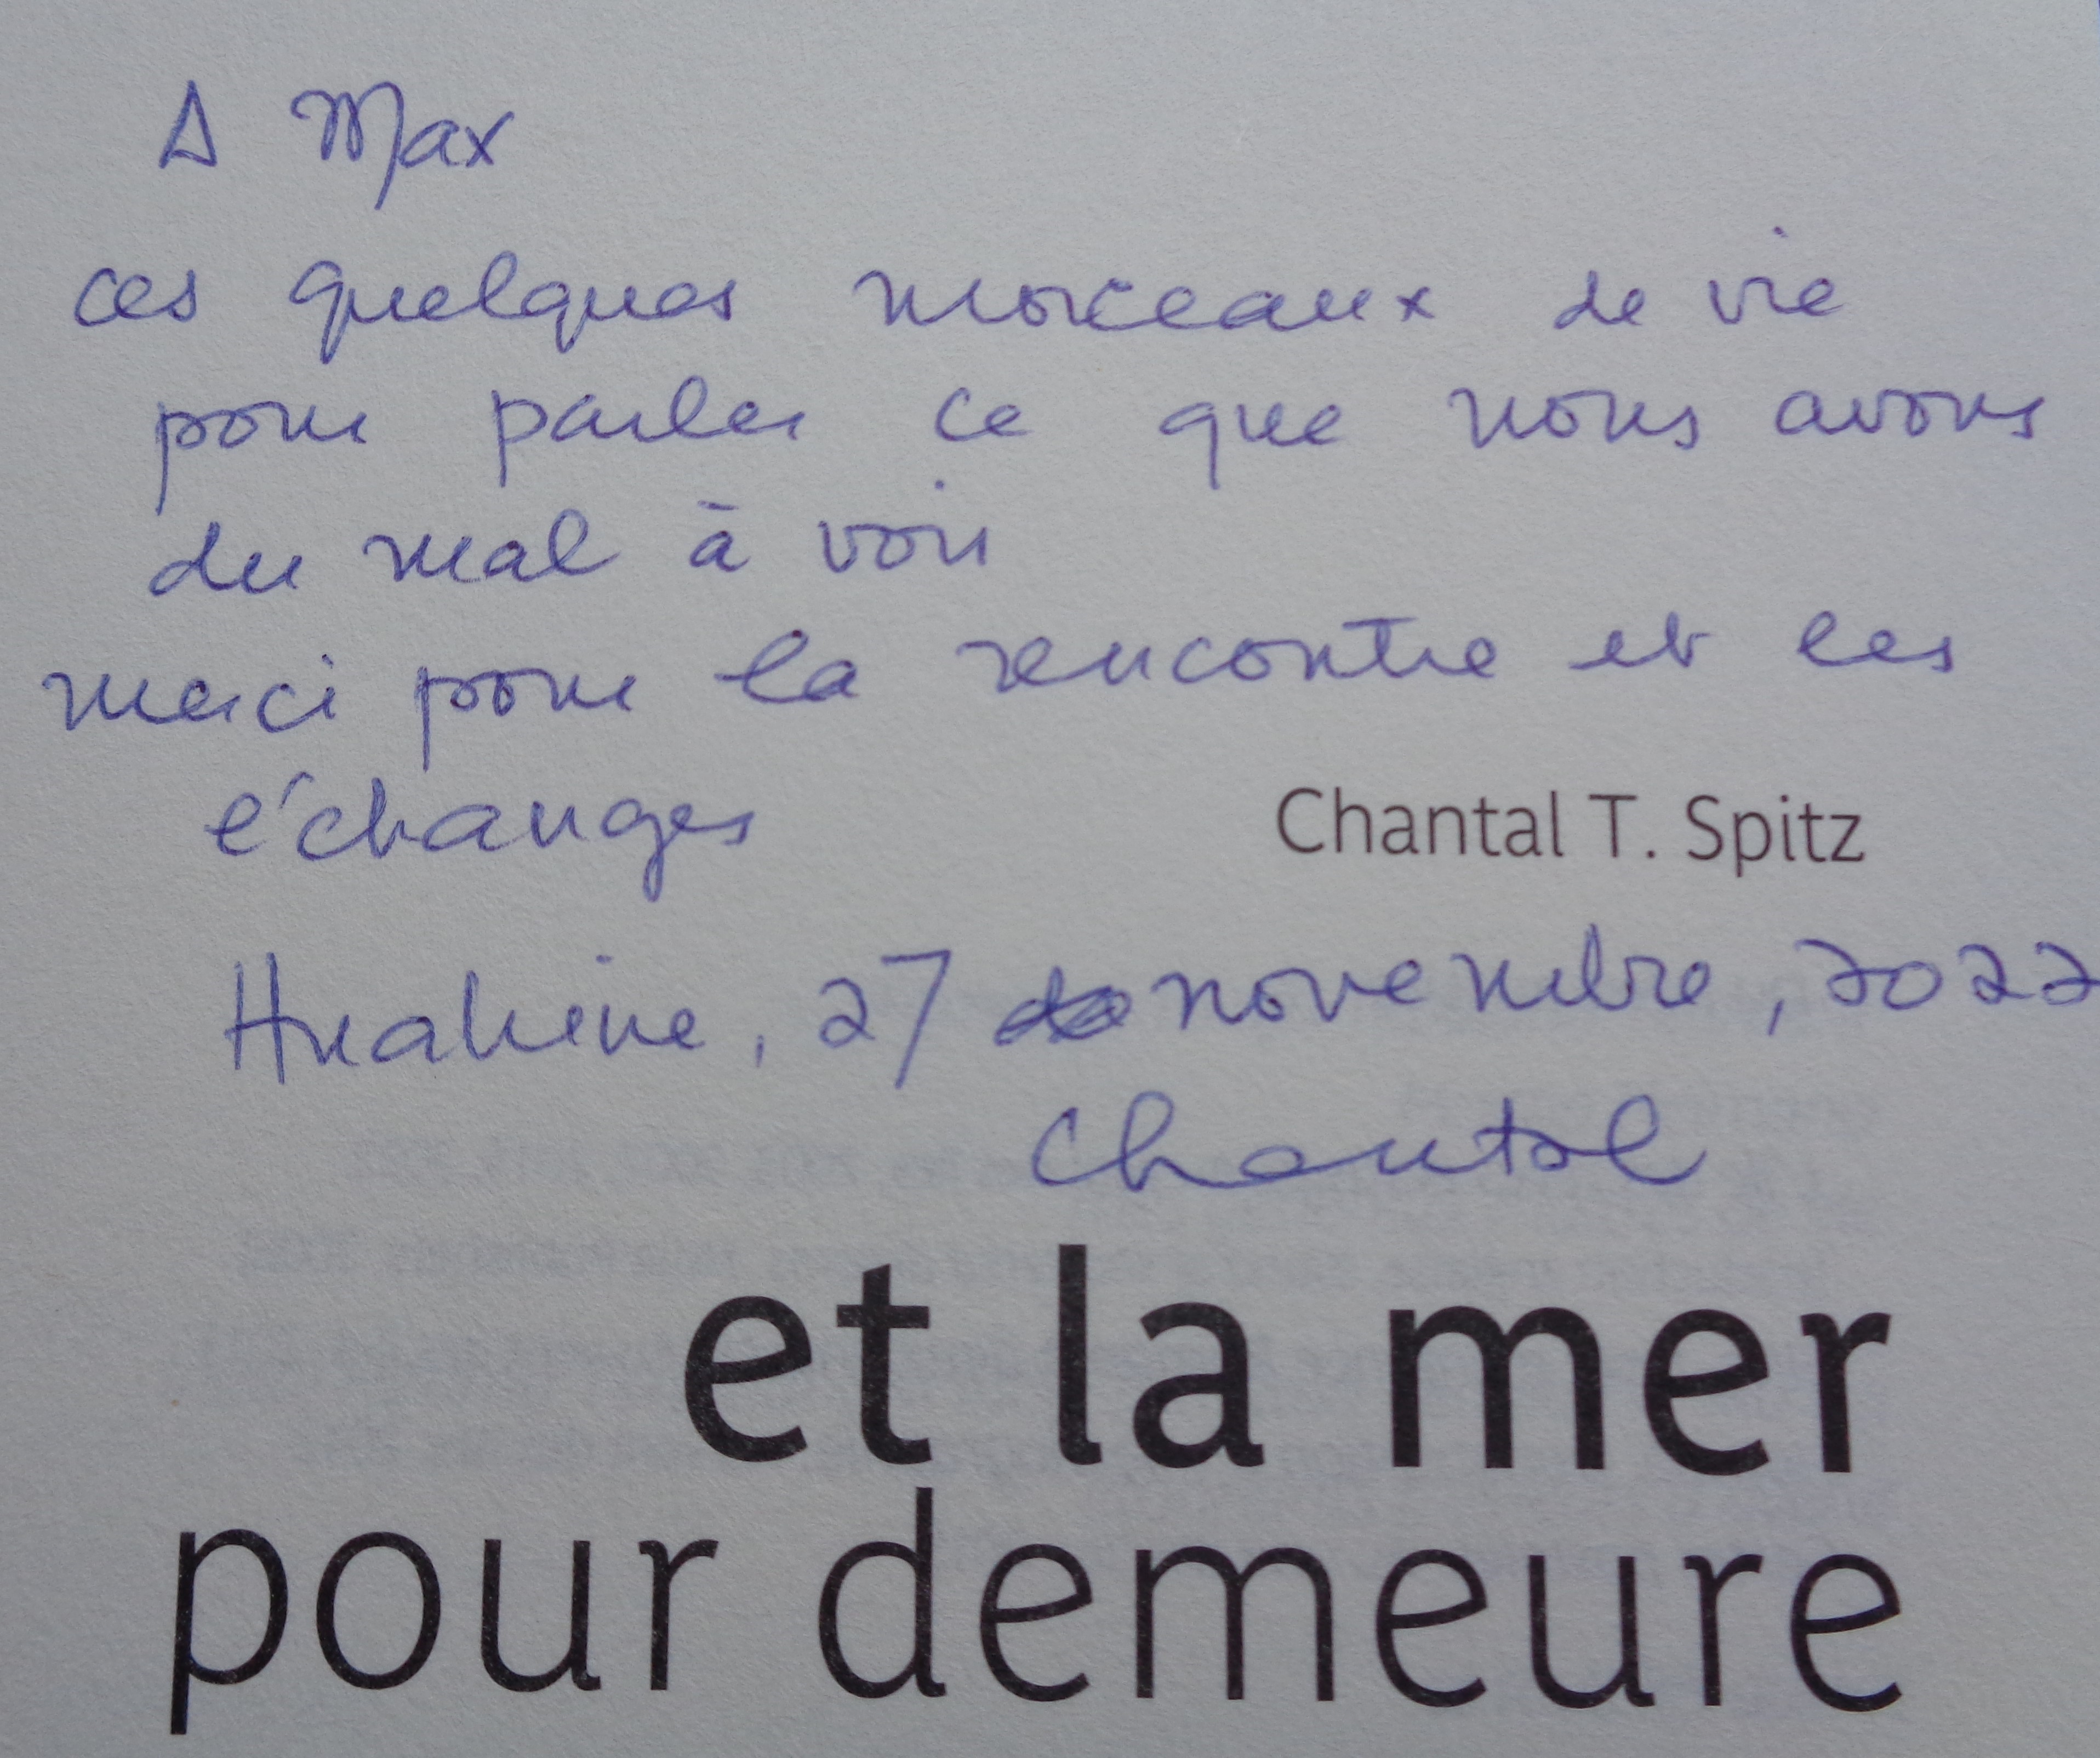 A Max
ces quelques morceaux de vie
pour parler ce que nous avons
du mal à voir
merci pour la rencontre et les
échanges
Chantal T. Spitz
Huahine, 27 novembre, 2022
Chantal
et la mer
pour demeure